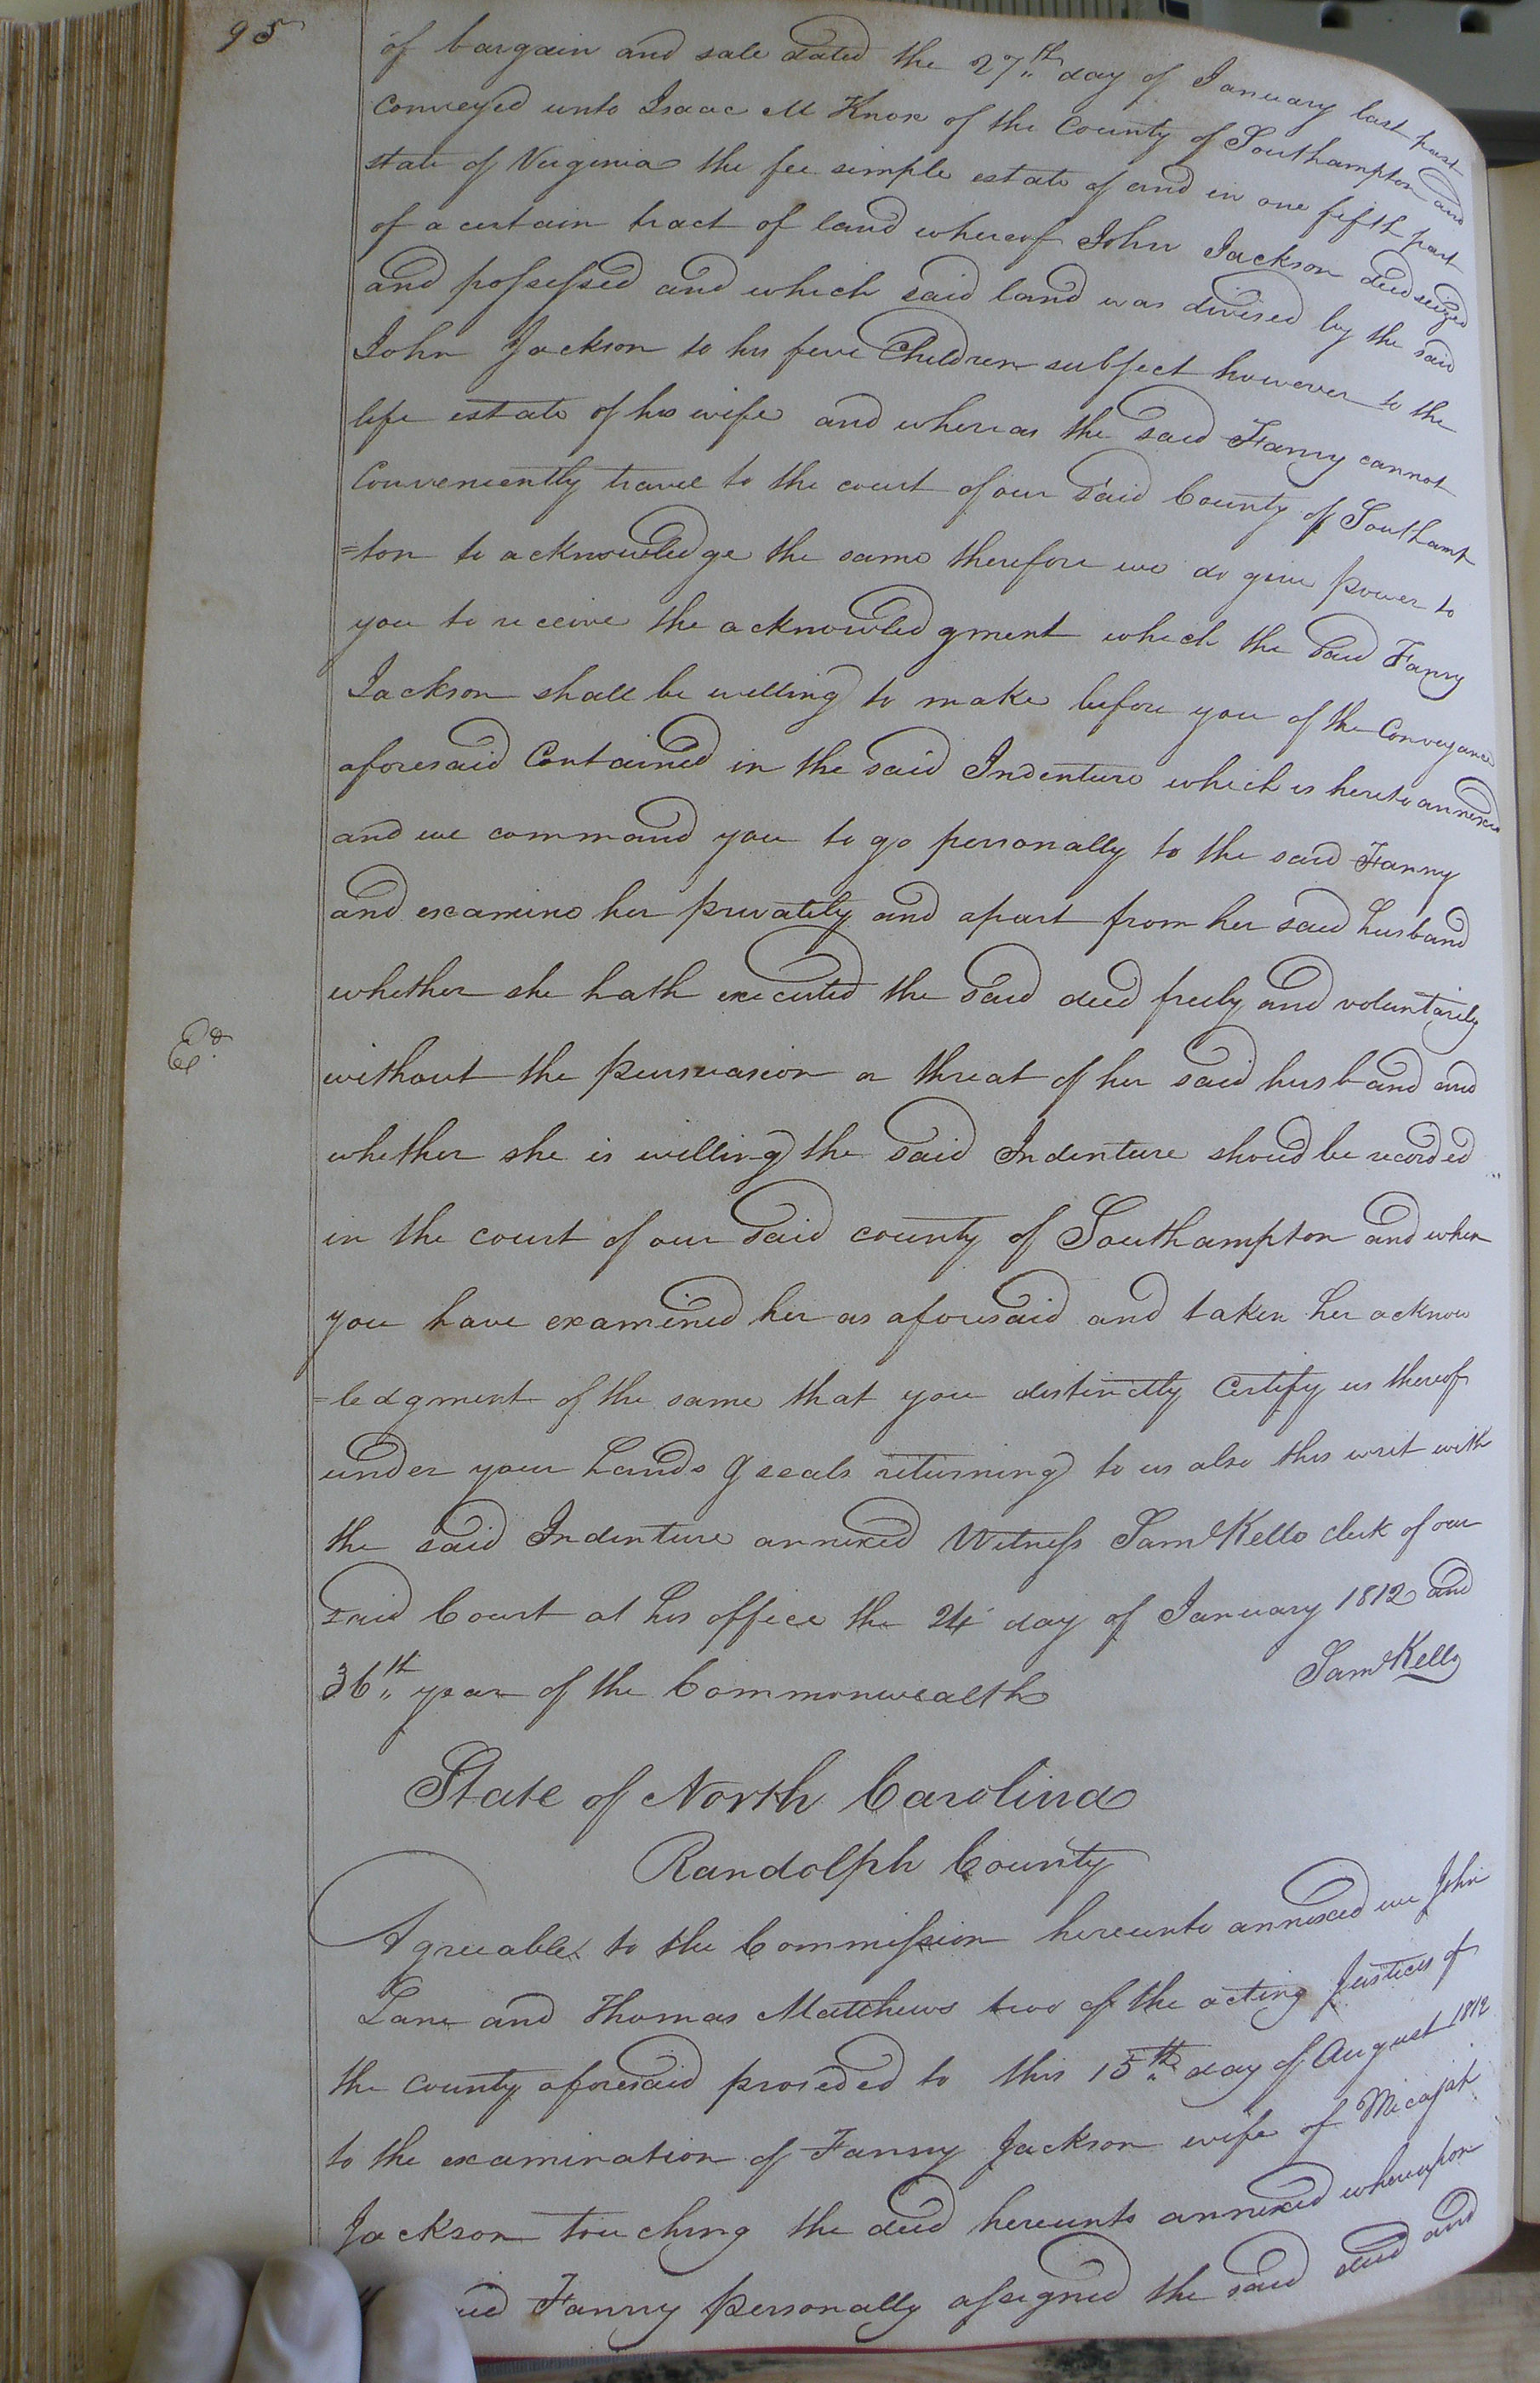 95
of bargain and sale dated the 27th day of January last past
conveyed unto Isaac M Knox of the County of Southampton and
state of Virginia the fee simple estate of and in one fifth part
of a certain tract of land whereof John Jackson died seized
and possessed and which said land was divised by the said
John Jackson to his five Children subject however to the
life estate of his wife and whereas the said Fanny cannot
Conveniently travel to the court of our said County of Southamp
=ton to acknowledge the same therefore we do give power to
you to receive the acknowledgment which the said Fanny
Jackson shall be willing to make before you of the Conveyance
aforesaid Contained in the said Indenture which is hereto annexed
and we command you to go personally to the said Fanny
and examine her privately and apart from her said husband
whether she hath executed the said deed freely and voluntarily
Ed.
without the persuasion or threat of her said husband and
whether she is willing the said Indenture should be recorded
in the court of our said county of Southampton and when
you have examined her as aforesaid and taken her acknow
=ledgment of the same that you distinctly Certify us thereof
under your hands & seals returning to us also this writ with
the said Indenture annexed Witness Saml Kello clerk of our
said Court at his office the 24 day of January 1812 and
36th year of the Commonwealth
Saml Kello
State of North Carolina
Randolph County
Agreeable to the Commission hereunto annexed we John
Lane and Thomas Matthews two of the acting Justices of
the County aforesaid proseded to this 15th day of August 1812
to the examination of Fanny Jackson wife of Micajah
Jackson touching the deed hereunto annexed whereupon
Fanny personally assigned the said deed and